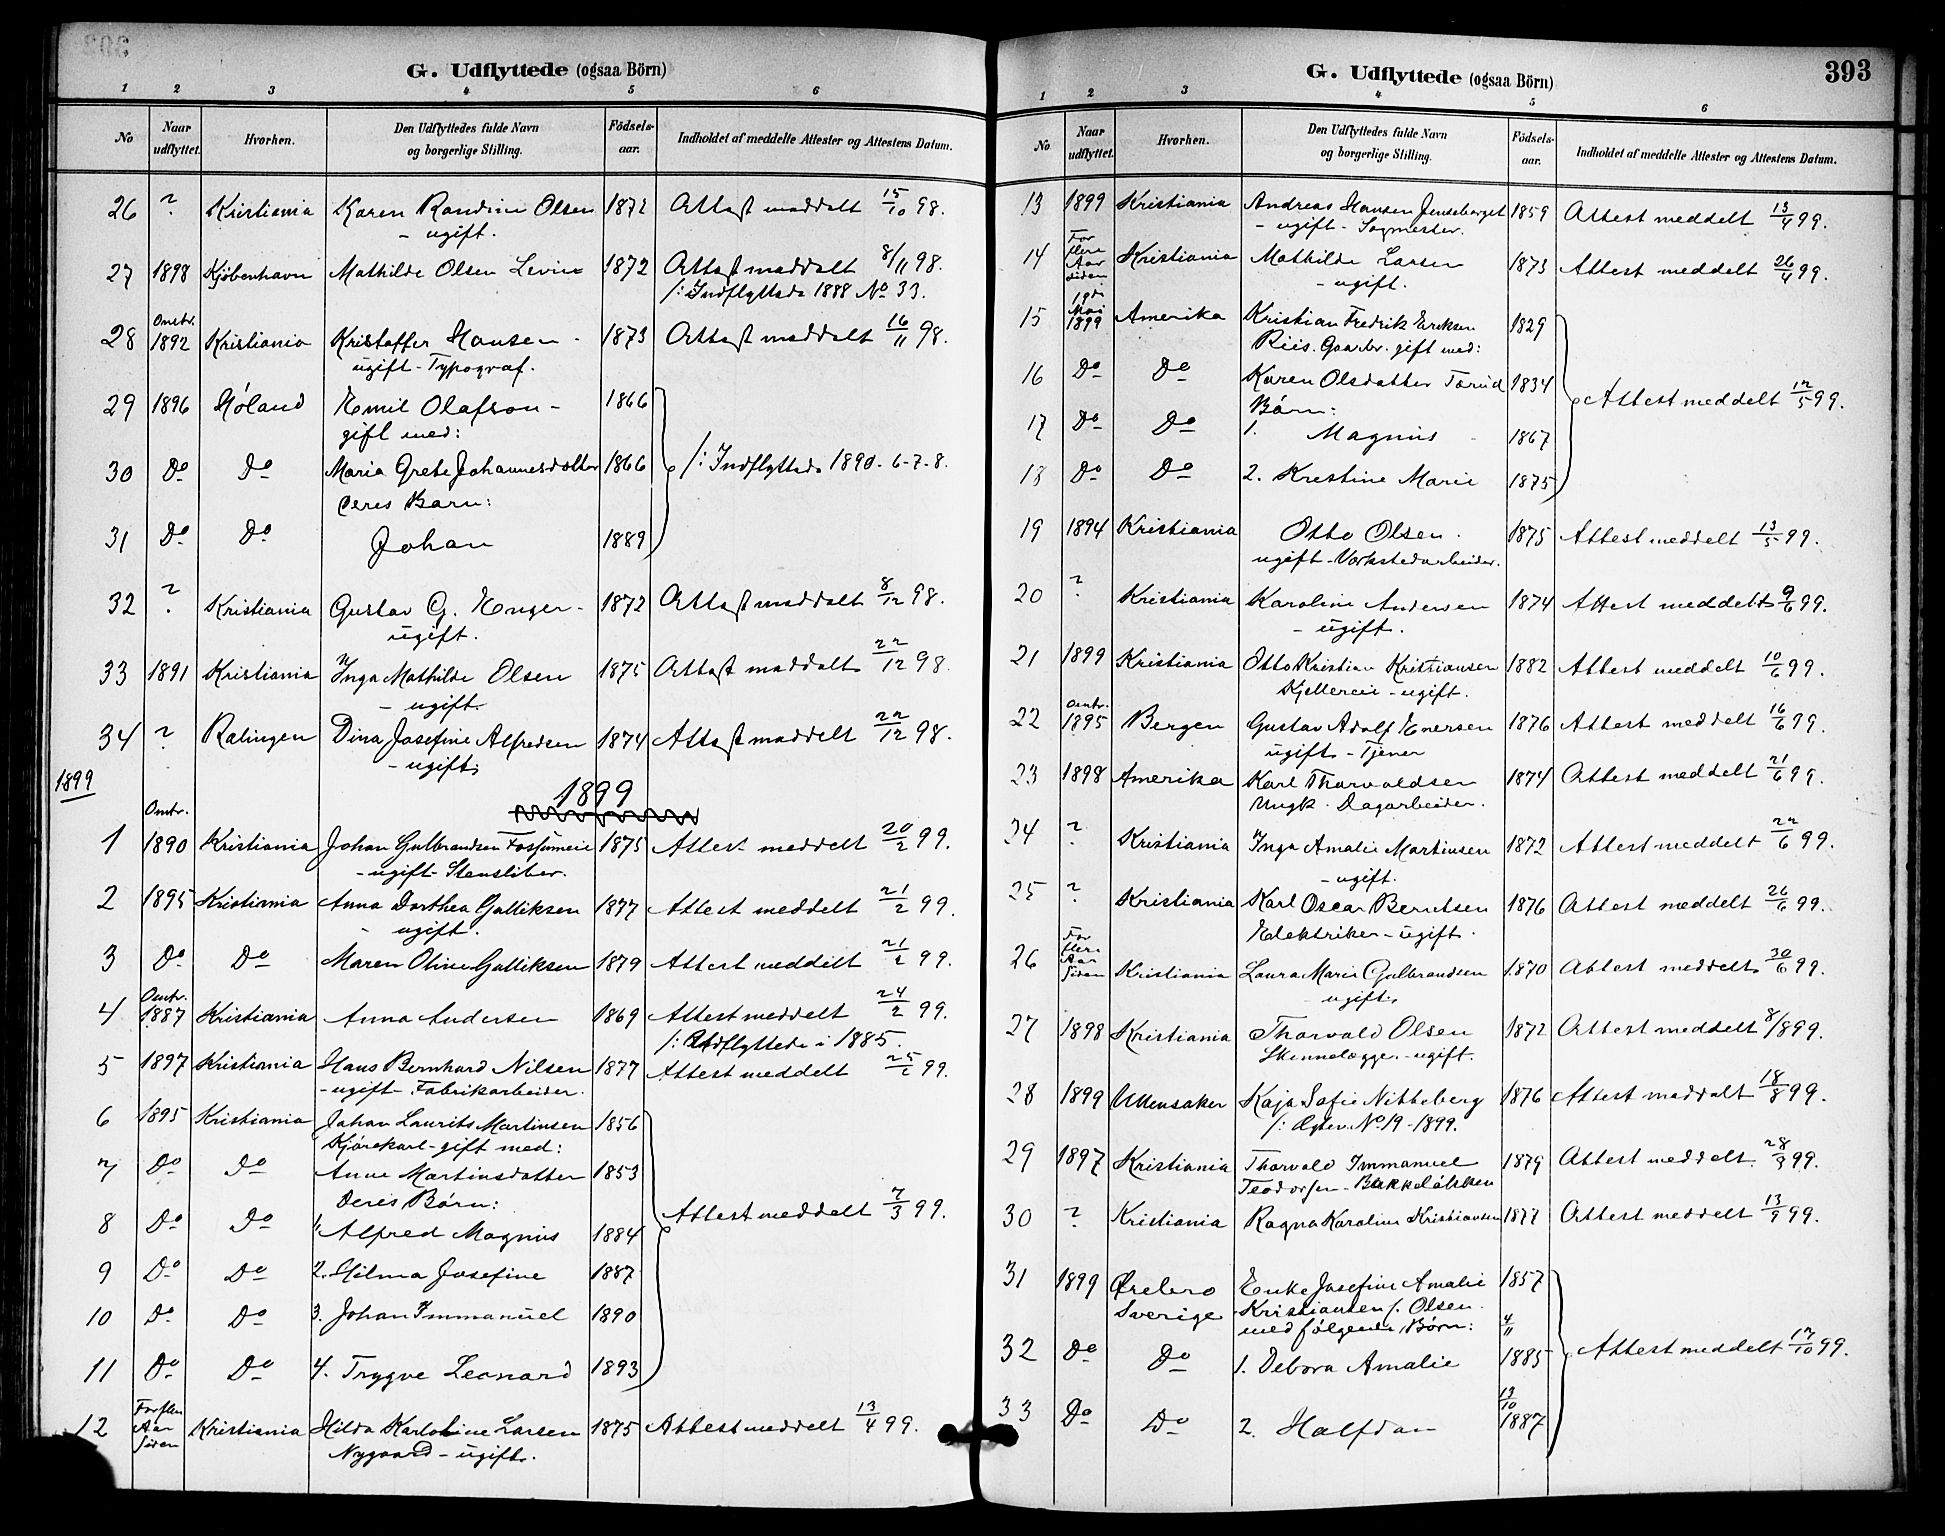 G. Udflyttede (ogsaa Börn)
1 2 3 4 5 6
No Naar udflyttet. Hvorhen. Den Udflyttedes fulde Navn og borgerlige Stilling. Födsels-aar. Indholdet af meddelte Attester og Attestens Datum.
26 ? Kristiania Karen Randine Olsen 1872 Attest meddelt 15/10 98.
- ugift.
27 1898 Kjöbenhavn Mathilde Olsen Levin 1872 Attest meddelt 8/11 98.
/: Indflyttede 1888 No 33.
28 Omtr. 1892 Kristiania Kristoffer Hansen - 1873 Attest meddelt 16/11 98.
ugift - Typograf.
29 1896 Höland Emil Olafson - 1866
gift med:
30 Do Do Maria Grete Johannesdatter 1866 /: Indflyttede 1890. 6-7-8.
Deres Barn:
31 Do Do Johan 1889
32 ? Kristiania Gustav G. Enger - 1872 Attest meddelt 8/12 98.
ugift.
33 1891 Kristiania Inga Mathilde Olsen 1875 Attest meddelt 22/12 98.
- ugift.
34 ? Rälingen Dina Josefine Alfredsen 1874 Attest meddelt 22/12 98.
- ugift.
1899
1899
1 Omtr. 1890 Kristiania Johan Gulbrandsen Fossumeie 1875 Attest meddelt 20/2 99.
- ugift - Stensliber.
2 1895 Kristiania Anna Dorthea Gulliksen 1877 Attest meddelt 21/2 99.
- ugift.
3 Do Do Maren Oline Gulliksen 1879 Attest meddelt 21/2 99.
4 Omtr. 1887 Kristiania Anna Andersen 1869 Attest meddelt 24/2 99.
/: Udflyttede i 1885.
5 1897 Kristiania Hans Bernhard Nilsen 1877 Attest meddelt 25/2 99.
- ugift - Fabrikarbeider.
6 1895 Kristiania Johan Laurits Martinsen 1856
Kjörekarl - gift med:
7 Do Do Anne Martinsdatter 1853
Deres Börn:
8 Do Do 1. Alfred Magnus 1884 Attest meddelt 7/3 99.
9 Do Do 2. Hilma Josefine 1887
10 Do Do 3. Johan Immanuel 1890
11 Do Do 4. Trygve Leonard 1893
12 For flere Aar siden Kristiania Hilda Karoline Larsen 1875 Attest meddelt 13/4 99.
Nygaard - ugift.
393
G. Udflyttede (ogsaa Börn)
1 2 3 4 5 6
No Naar udflyttet. Hvorhen. Den Udflyttedes fulde Navn og borgerlige Stilling. Födsels-aar. Indholdet af meddelte Attester og Attestens Datum.
13 1899 Kristiania Andreas Hansen Jenseberget 1859 Attest meddelt 13/4 99.
- ugift - Sagmester.
14 For flere Aar siden Kristiania Mathilde Larsen 1873 Attest meddelt 26/4 99.
- ugift.
15 Mai 1899 Amerika Kristian Fredrik Eriksen 1829
Riis. Gaardbr. gift med:
16 Do Do Karen Olsdatter Tærud 1834 Attest meddelt 12/5 99.
Börn:
17 Do Do 1. Magnus 1867
18 Do Do 2. Krestine Marie 1875
19 1894 Kristiania Otto Olsen. 1875 Attest meddelt 13/5 99.
ugift - Verkstedarbeider.
20 ? Kristiania Karoline Andersen 1874 Attest meddelt 9/6 99.
- ugift.
21 1899 Kristiania Otto Kristian Kristiansen 1882 Attest meddelt 10/6 99.
Kjellereie - ugift.
22 Omtr. 1895 Bergen Gustav Adolf Enersen 1876 Attest meddelt 16/6 99.
ugift - Tjener
23 1898 Amerika Karl Thorvaldsen 1874 Attest meddelt 21/6 99.
Ungk. Dagarbeider.
24 ? Kristiania Inga Amalie Martinsen 1872 Attest meddelt 22/6 99.
- ugift.
25 ? Kristiania Karl Oscar Berntsen 1876 Attest meddelt 26/6 99.
Elektriker - ugift.
26 For flere Aar siden Kristiania Laura Marie Gulbrandsen 1870 Attest meddelt 30/6 99.
- ugift.
27 1898 Kristiania Thorvald Olsen 1872 Attest meddelt 8/8 99.
Skinnelægger - ugift.
28 1899 Ullensaker Kaja Sofie Nitteberg 1876 Attest meddelt 18/8 99.
/: Ægtev. No 19 - 1899.
29 1897 Kristiania Thorvald Immanuel 1879 Attest meddelt 28/8 99.
Teodorsen - Bakkelökken
30 ? Kristiania Ragna Karoline Kristiansen 1877 Attest meddelt 13/9 99.
31 1899 Örebro Enke Josefine Amalie 1857
Sverige Kristiansen f. Olsen.
med følgende Börn: 4/11
32 Do Do 1. Debora Amalie 1885 Attest meddelt 17/10 99.
33 Do Do 2. Halfdan 13/10 1887